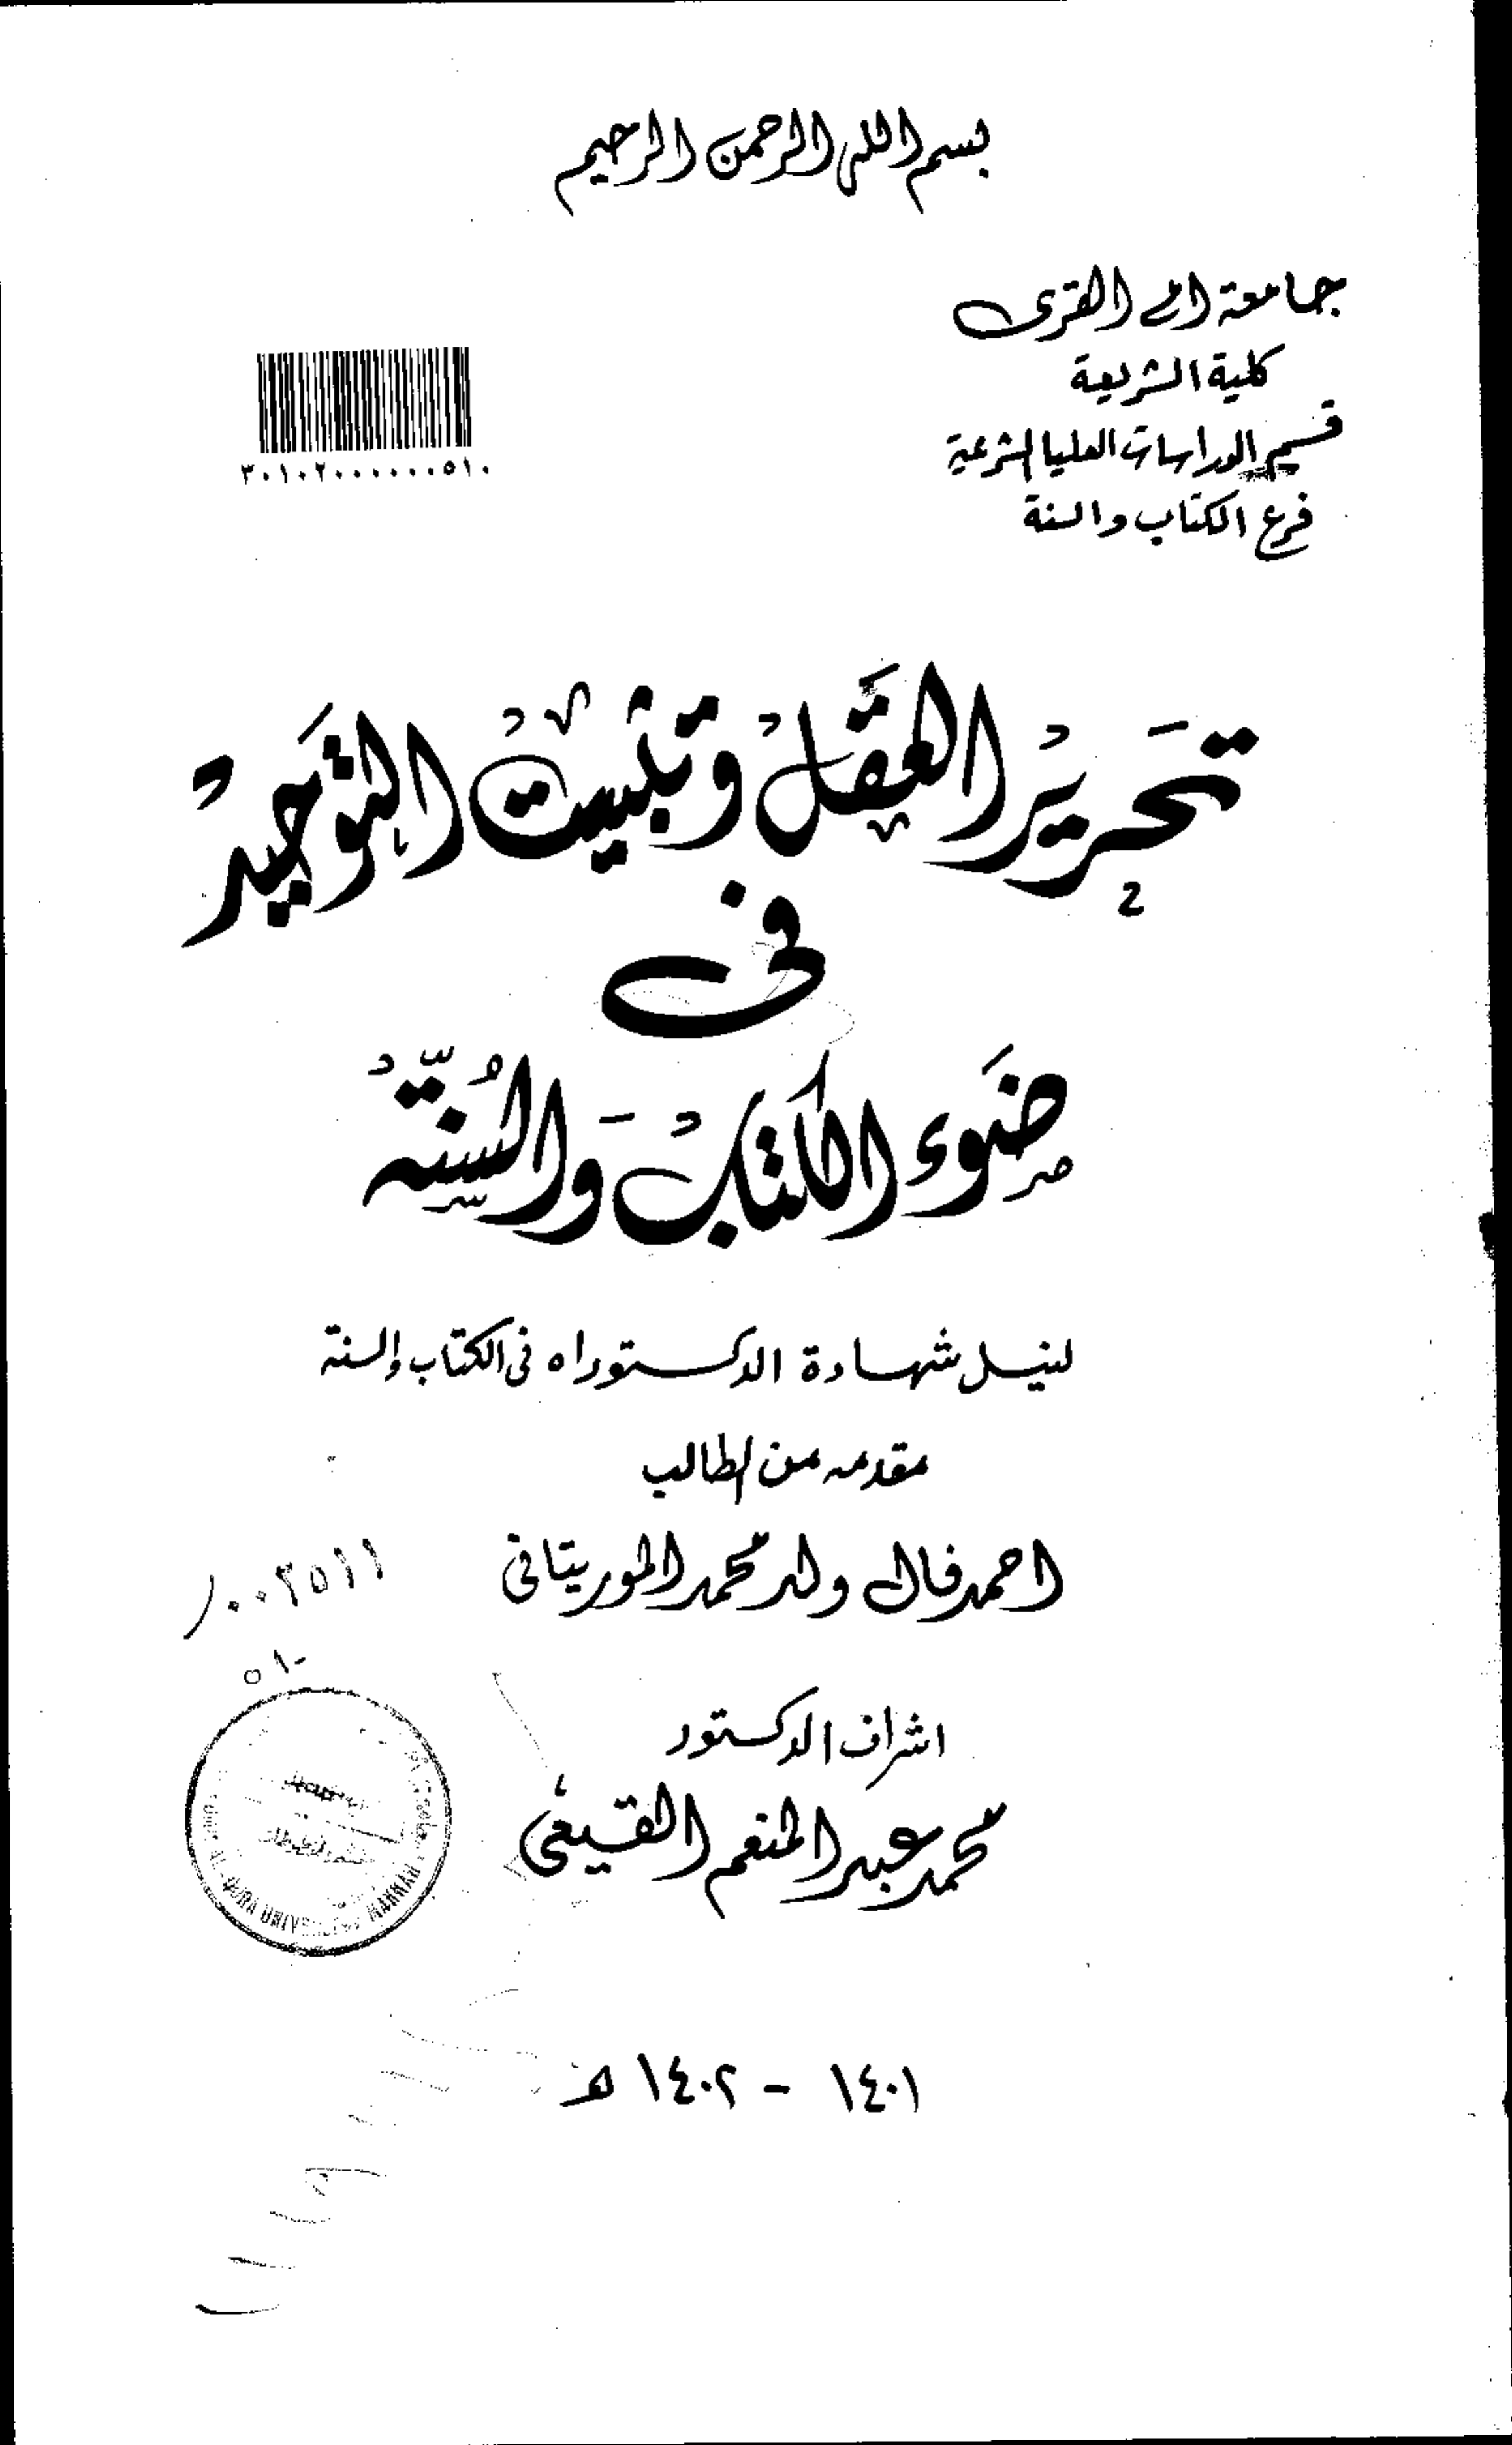 بسم الله الرحمن الرحيم
جامعة ام القرى
كلية الشريعة
قسم الدراسات العليا الشرعية
فرع الكتاب والسنة
٣٠١٠٢٠٠٠٠٠٠٥١٠
تَحريرُ العَقلُ وتثبيتُ التوَحيدُ
فى
ضَوء الكتابُ وَالسُنّةُ
لنيل شهادة الدكتوراه فى الكتاب والسنة
مقدمه من الطالب
احمد فال ولد محمد الموريتانى
١٠٠٢٥١١
٥١٠
اشراف الدكتور
محمد عبد المنعم القيعى
QURA UNIVERSITY MAKKAH
١٤٠١ - ١٤٠٢ هـ